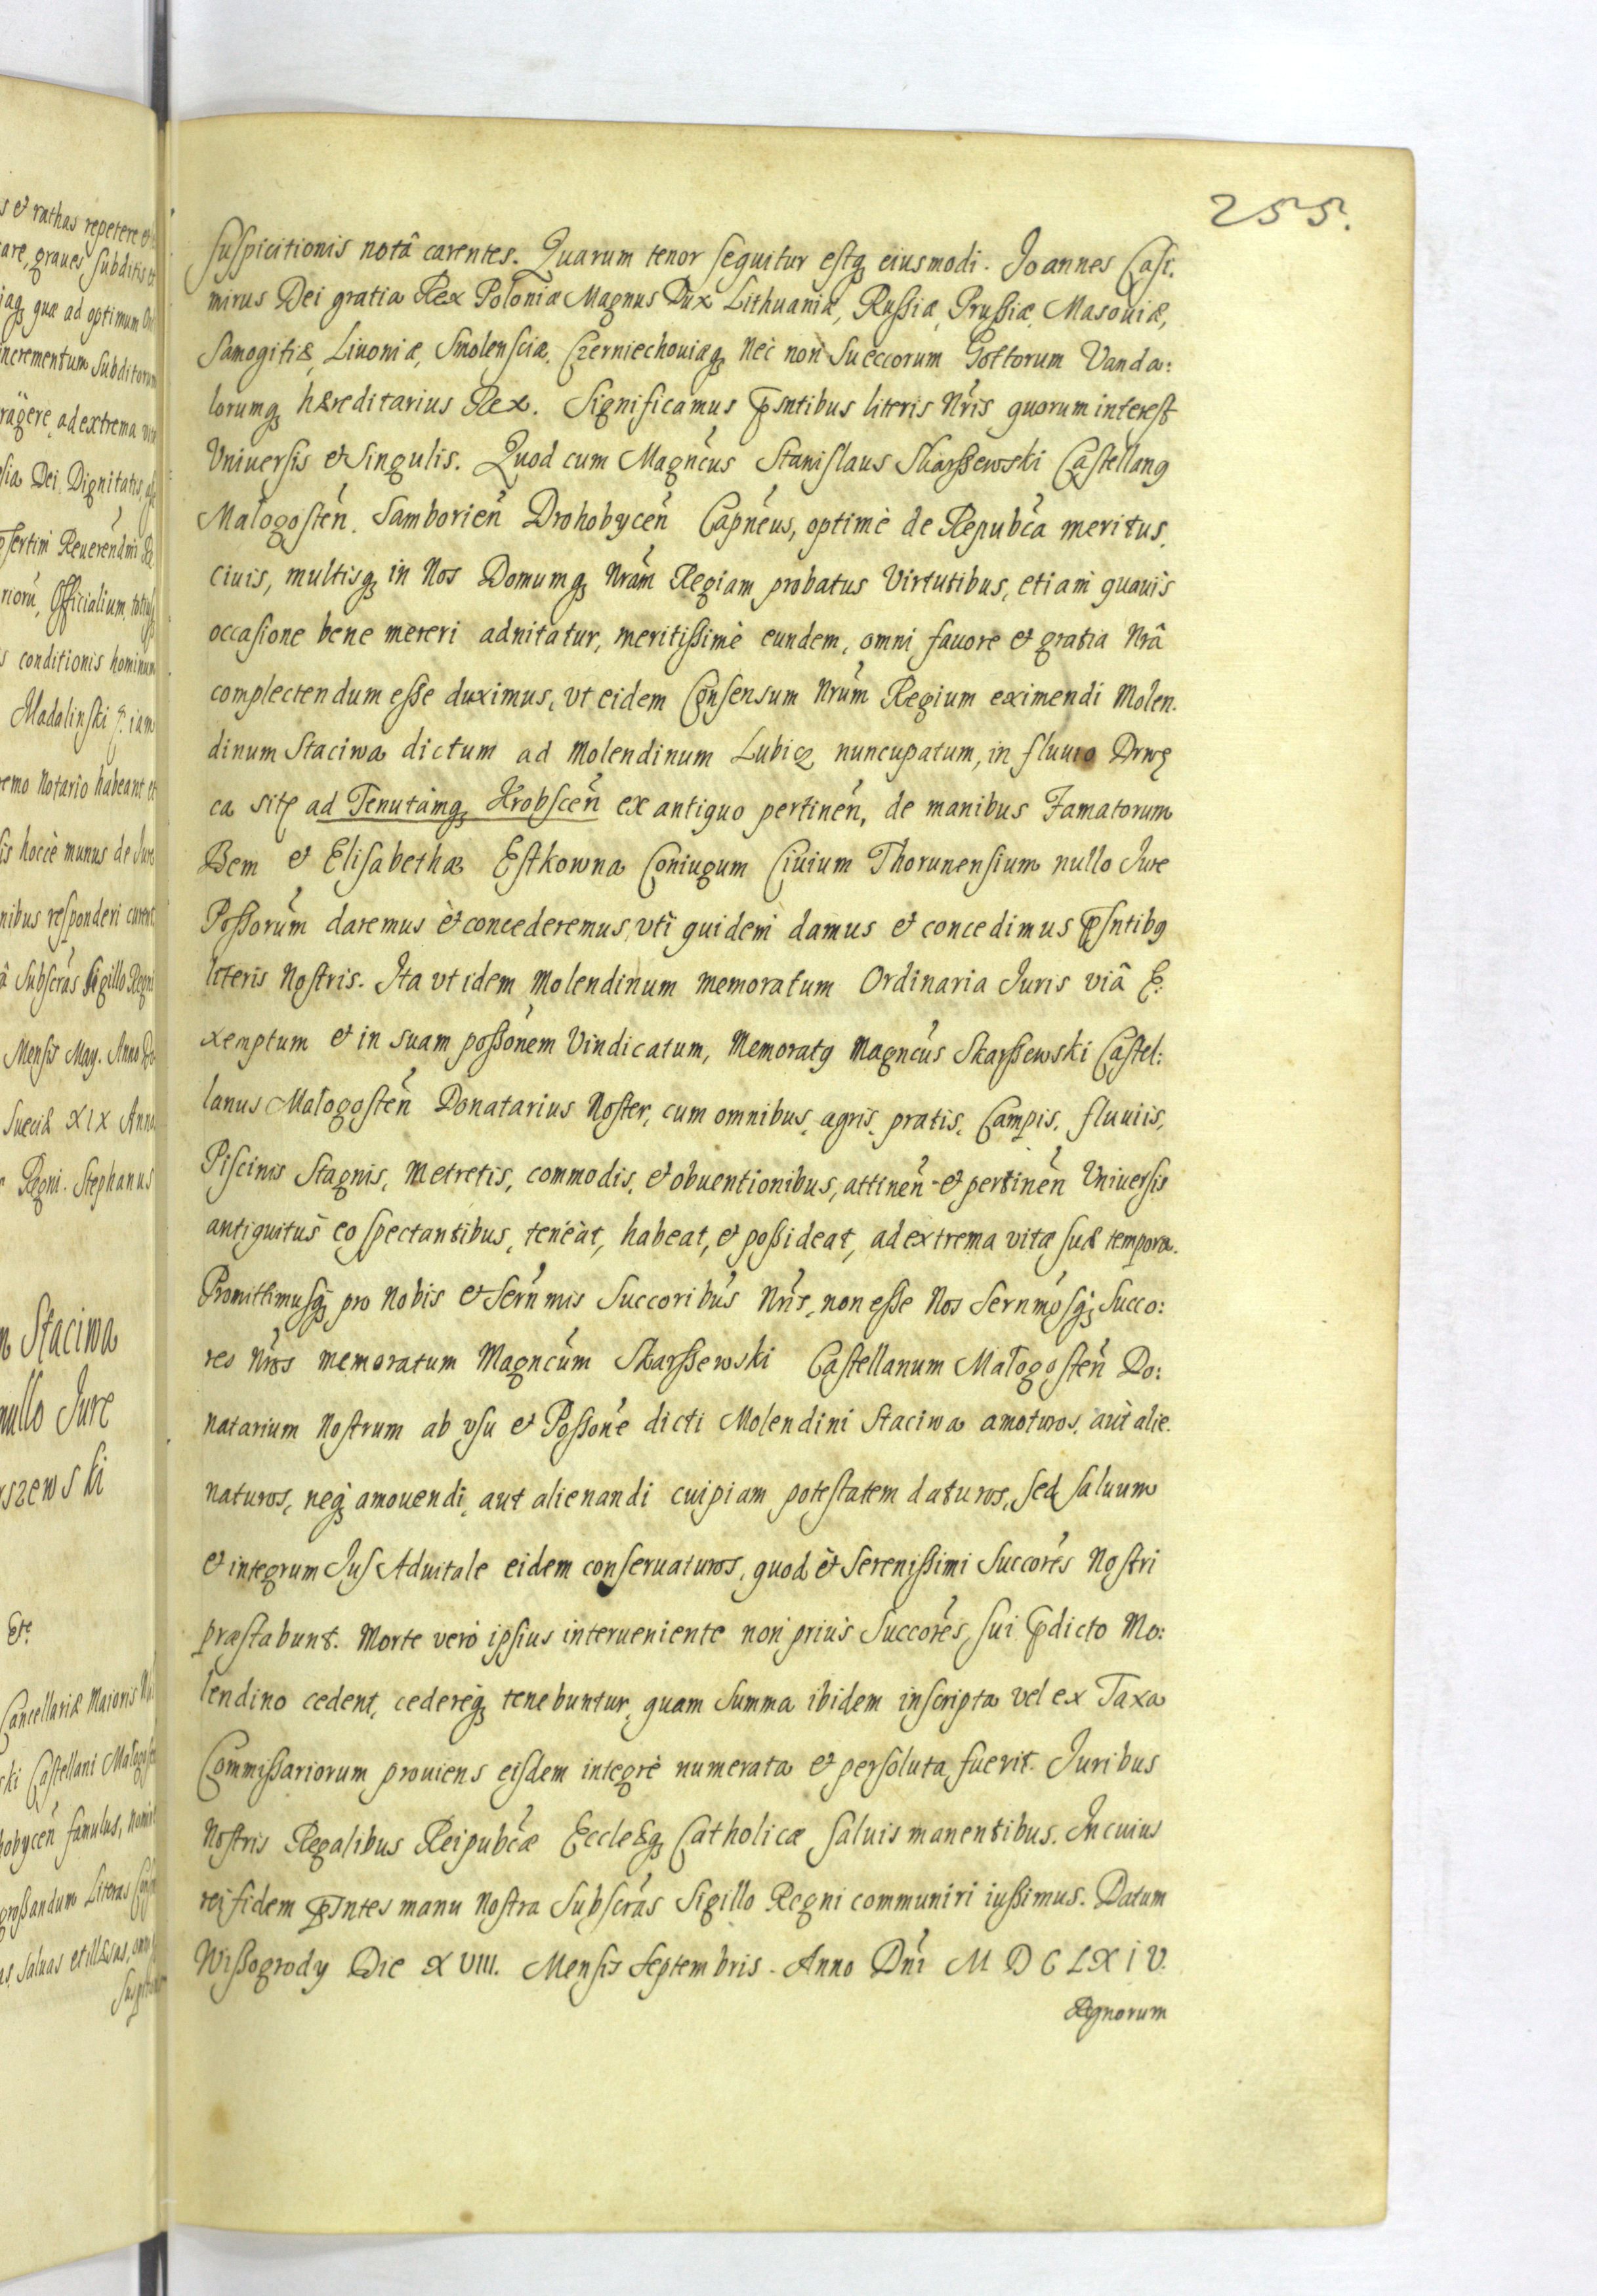 255.
suspicitionis notâ carentes. Quarum tenor sequitur estq₃ eiusmodi. Joannes Casi:
mirus Dei gratia Rex Poloniæ Magnus Dux Lithuaniæ, Russiæ, Prussiæ, Masouiæ,
Samogitiæ, Liuoniæ, Smolensciæ, Czerniechouiæq₃ Nec non Sueccorum Gottorum Vanda:
lorumq₃ hæreditarius Rex. Significamus pñtibus literis Nris quorum interest
Vniuersis et Singulis. Quod cum Magncus Stanislaus Skarszewski Castellanꝯ
Małogosten. Samborien Drohobycen Capneus, optimè de Repubca meritus
ciuis, multisq₃ in Nos Domumq₃ Nram Regiam probatus Virtutibus, etiam quauis
occasione bene mereri adnitatur, meritissimè eundem, omni fauore et gratia Nrâ
complectendum esse duximus, vt eidem Consensum Nrum Regium eximendi Molen.
dinum Staciwa dictum ad Molendinum Lubicz nuncupatum, in fluuio Drwę
ca site ad Tenutamq₃ Krobscen ex antiquo pertinen, de manibus Famatorum
Bem et Elisabetha Estkowna Coniugum Ciuium Thorunensium nullo Jure
Possorum daremus et concederemus, vti quidem damus et concedimus pñtibꝯ
literis Nostris. Ita vt idem Molendinum memoratum Ordinaria Juris viâ E:
xemptum et in suam possonem Vindicatum, Memoratꝯ Magncus Skarszewski Castel:
lanus Małogosten Donatarius Noster, cum omnibus, agris, pratis, Campis, fluuiis,
Piscinis Stagnis, Metretis, commodis, et obuentionibus, attinen et pertinen Vniuersis
antiquitus eo spectantibus, teneat, habeat, et possideat, ad extrema vitæ suæ tempora.
Promittimusq₃ pro Nobis et Sernmis Succoribus Nris, non esse Nos Sernmosq₃ Succo:
res Nros memoratum Magncum Skarszewski Castellanum Małogosten Do:
natarium Nostrum ab vsu et Possone dicti Molendini Staciwa amoturos, aut alie.
naturos, neq₃ amouendi, aut alienandi cuipiam potestatem daturos, sed saluum
et integrum Jus Aduitale eidem conseruaturos, quod et Serenissimi Succores Nostri
præstabunt. Morte vero ipsius interueniente non prius Succores, sui pdicto Mo:
lendino cedent, cedereq₃ tenebuntur, quam Summa ibidem inscripta vel ex Taxa
Commissariorum prouiens eisdem integrè numerata et persoluta fuerit. Juribus
Nostris Regalibus Reipubcæ Eccleæq₃ Catholicæ saluis manentibus. In cuius
rei fidem pñtes manu Nostra Subscras Sigillo Regni communiri iussimus. Datum
Wissogrody Die XVIII. Mensis Septembris. Anno Dni MDCLXIV.
Regnorum